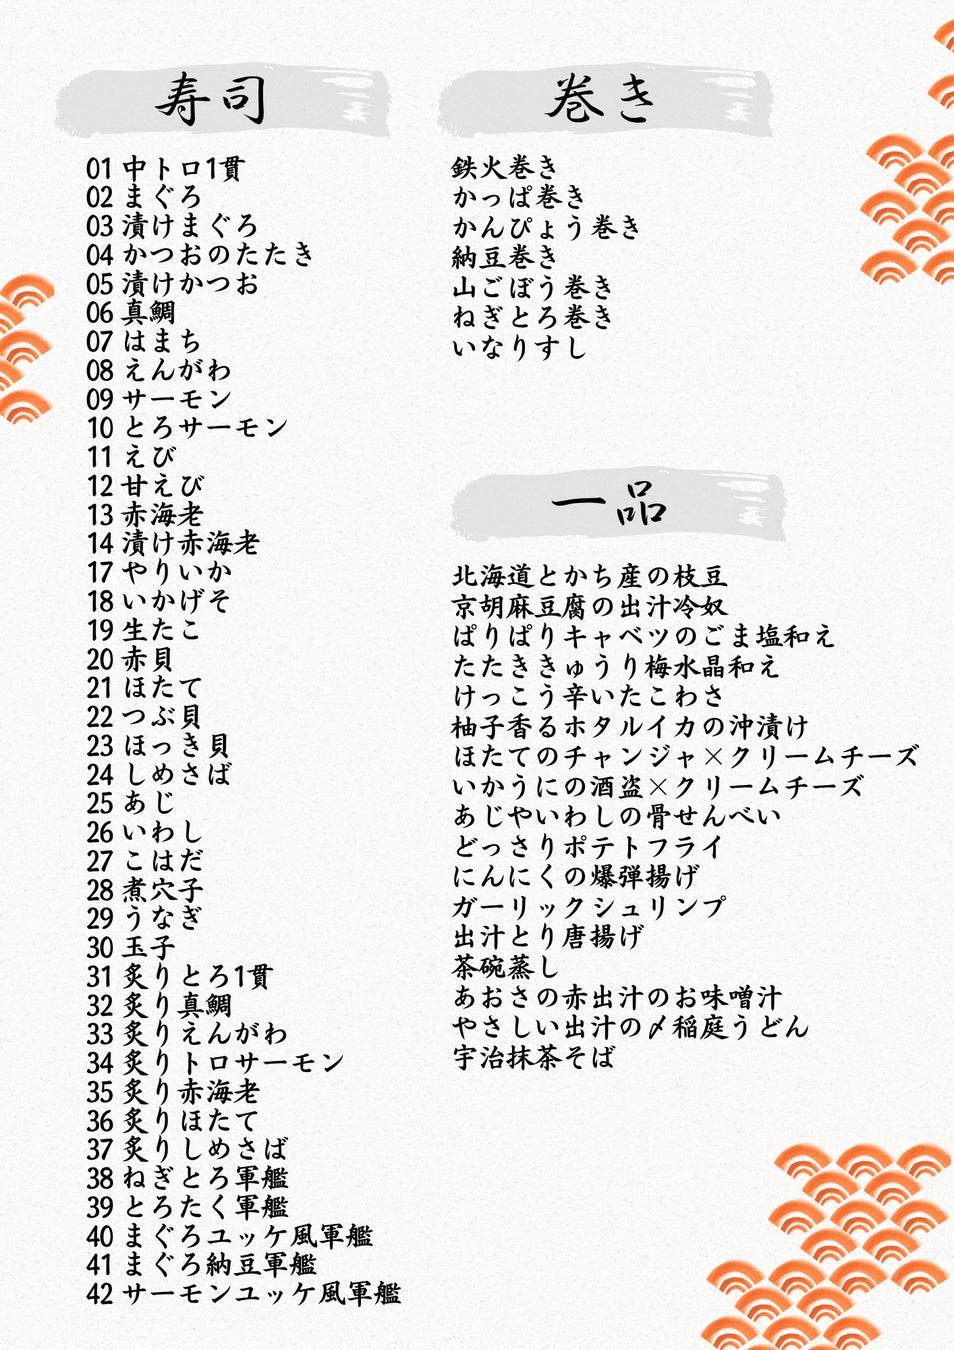 寿司
01 中トロ1貫
02 まぐろ
03 漬けまぐろ
04 かつおのたたき
05 漬けかつお
06 真鯛
07 はまち
08 えんがわ
09 サーモン
10 とろサーモン
11 えび
12 甘えび
13 赤海老
14 漬け赤海老
17 やりいか
18 いかげそ
19 生たこ
20 赤貝
21 ほたて
22 つぶ貝
23 ほっき貝
24 しめさば
25 あじ
26 いわし
27 こはだ
28 煮穴子
29 うなぎ
30 玉子
31 炙りとろ1貫
32 炙り真鯛
33 炙りえんがわ
34 炙りトロサーモン
35 炙り赤海老
36 炙りほたて
37 炙りしめさば
38 ねぎとろ軍艦
39 とろたく軍艦
40 まぐろユッケ風軍艦
41 まぐろ納豆軍艦
42 サーモンユッケ風軍艦
巻き
鉄火巻き
かっぱ巻き
かんぴょう巻き
納豆巻き
山ごぼう巻き
ねぎとろ巻き
いなりすし
一品
北海道とかち産の枝豆
京胡麻豆腐の出汁冷奴
ぱりぱりキャベツのごま塩和え
たたききゅうり梅水晶和え
けっこう辛いたこわさ
柚子香るホタルイカの沖漬け
ほたてのチャンジャ×クリームチーズ
いかうにの酒盗×クリームチーズ
あじやいわしの骨せんべい
どっさりポテトフライ
にんにくの爆弾揚げ
ガーリックシュリンプ
出汁とり唐揚げ
茶碗蒸し
あおさの赤出汁のお味噌汁
やさしい出汁の〆稲庭うどん
宇治抹茶そば